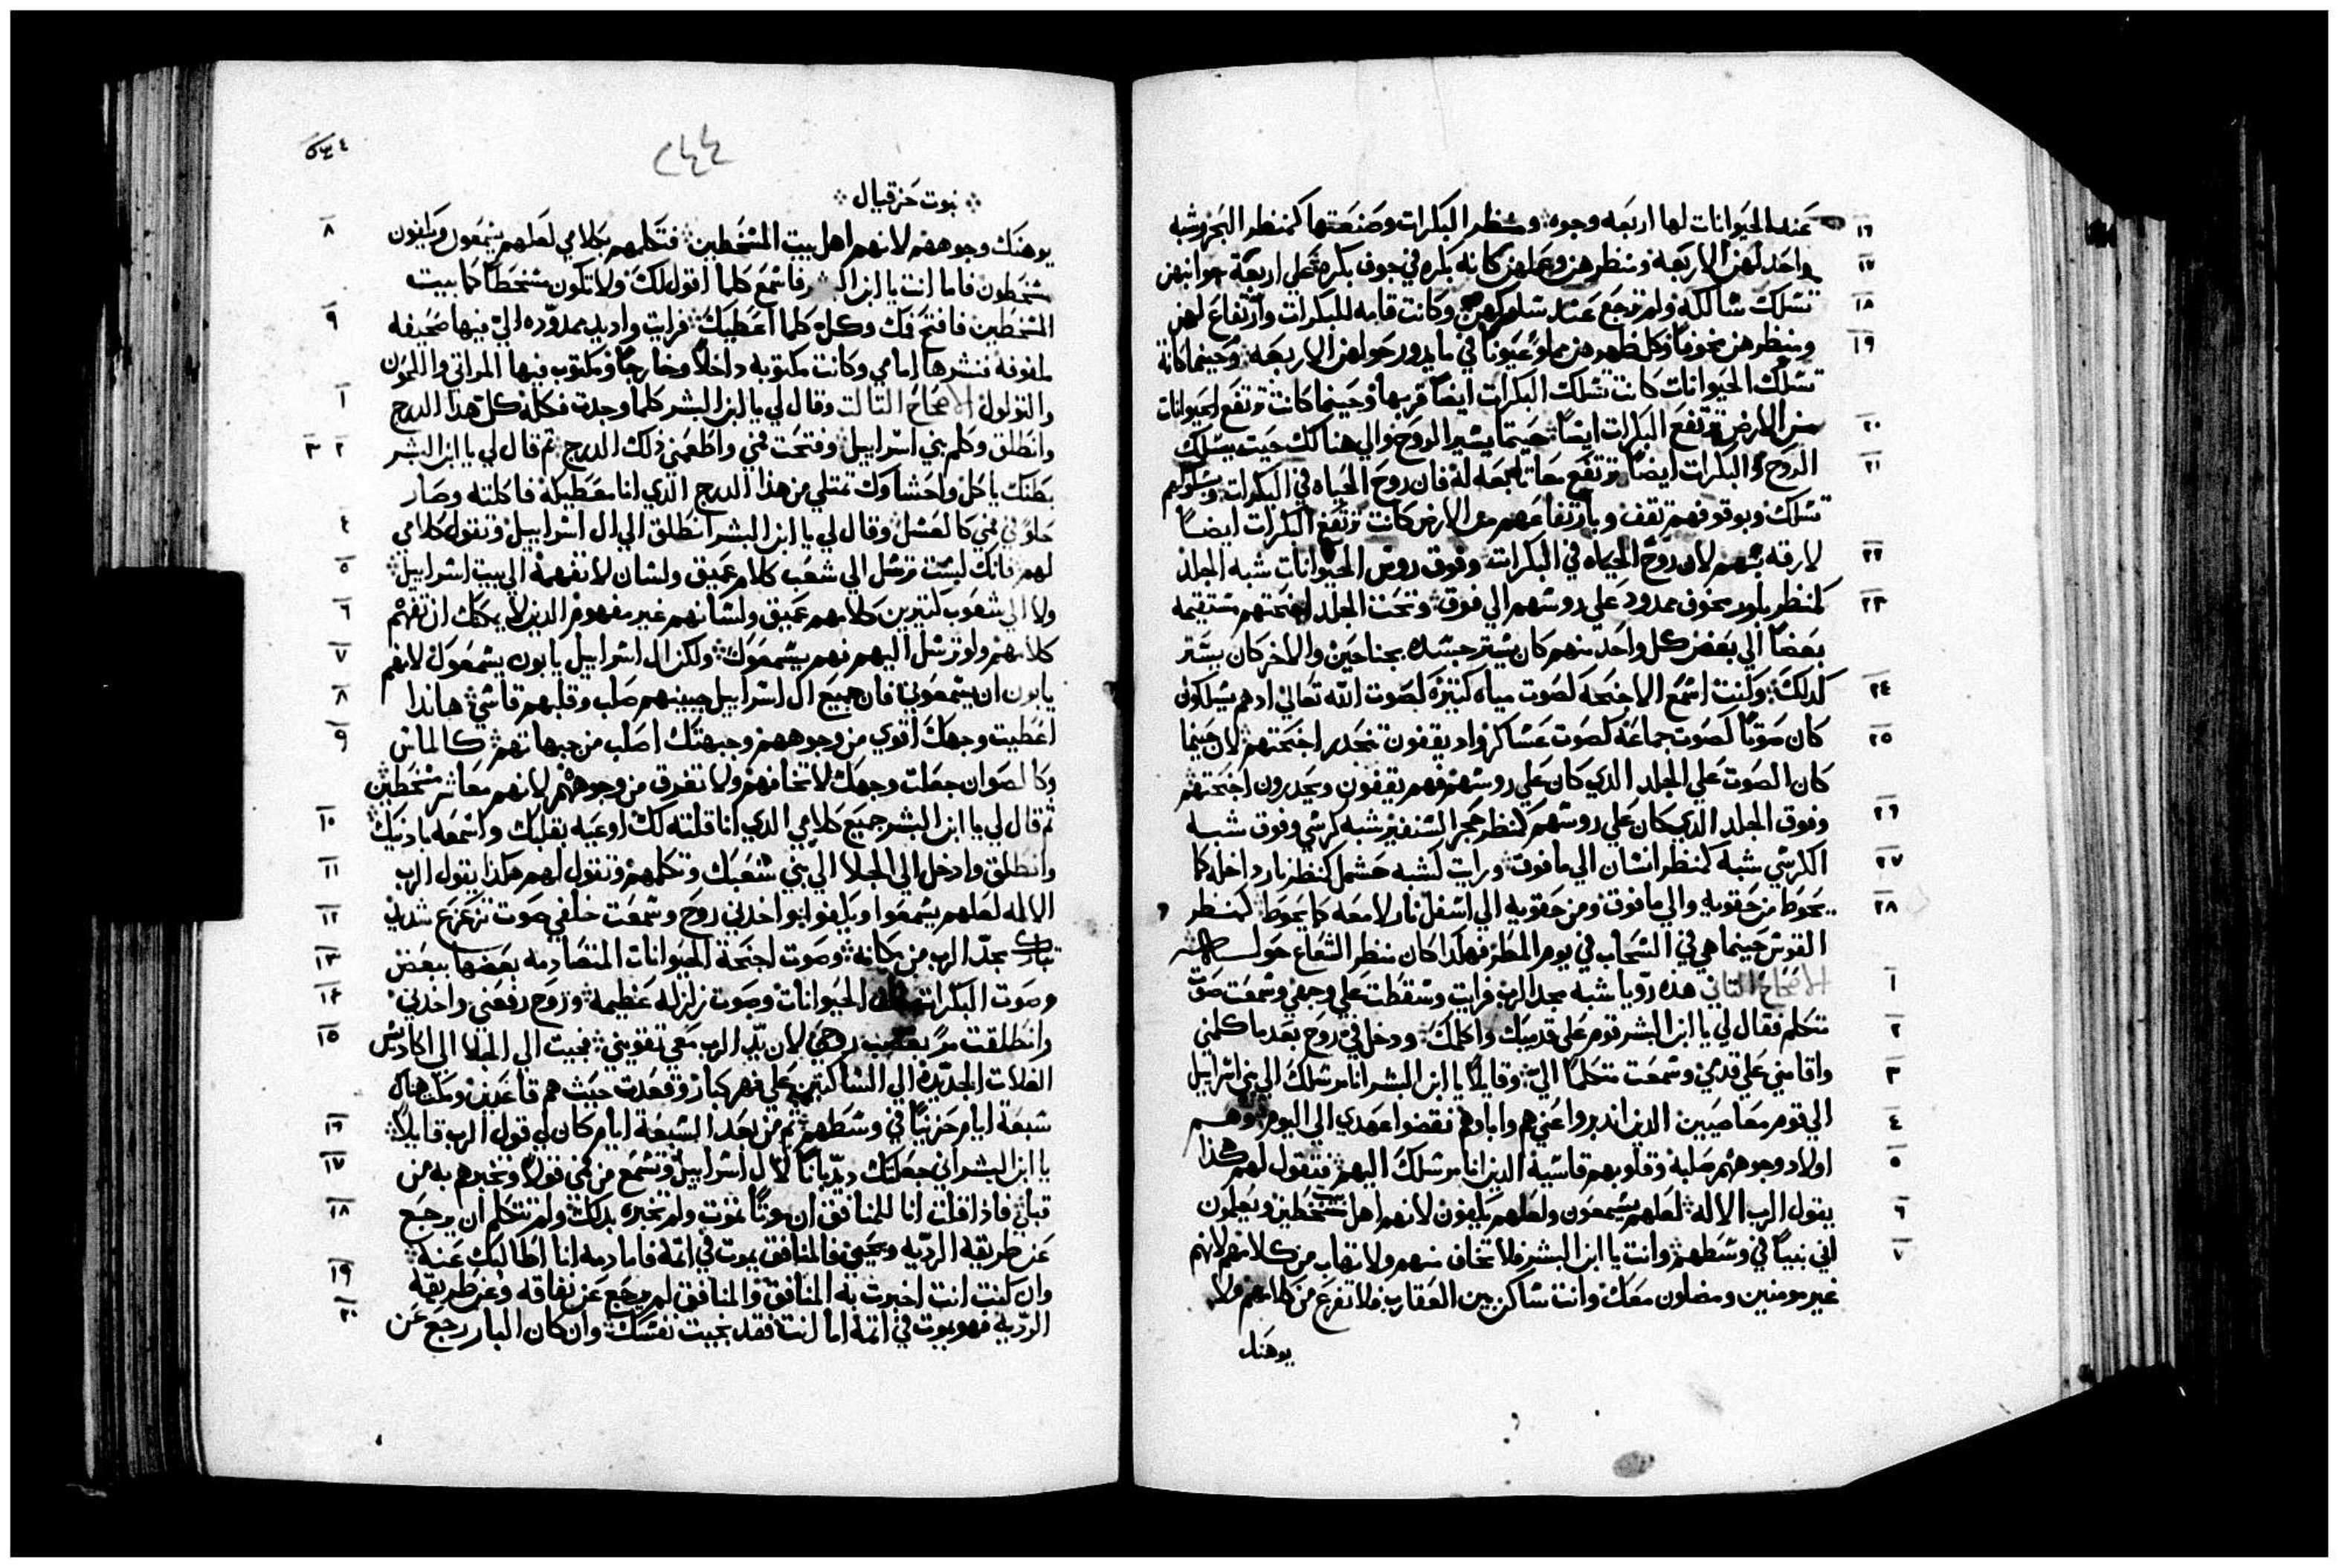 ١٦ عند الحيوانات لها اربعه وجوه ومنظر البكرات وصنعتها كمنظر البحر وشبه
١٧ واحد لهن الاربعه ومنظرهن وعملهن كانه بكره في جوف بكره علي اربعة جوانبهن
١٨ تسلك سالكه ولم ترجع عند سلوكهن وكانت قامه للبكرات وارتفاع لهن
١٩ ومنظرهن مخوفا وكل ظهرهن مملو عيونا في ما يدور حولهن الاربعه وحينما كانة
تسلك الحيوانات كانت تسلك البكرات ايضا قربها وحينما كانت ترتفع الحيوانات
٢٠ من الارض ترتفع البكرات ايضا حيتما يشير الروح والي هنالك حيت يسلك
٢١ الروح والبكرات ايضا ترتفع معا تابعه له فان روح الحياه في البكرات وبسلوكهم
تسلك وبوقوفهم تقف وبارتفاعهم من الارض كانت ترتفع البكرات ايضا
٢٢ لان روح الحياه في البكرات وفوق روس الحيوانات شبه الجلد
٢٣ كمنظر بلور مخوف ممدود علي روسهم الي فوق وتحت الجلد اجنحتهم مستقيمه
بعضا الي بعض كل واحد منهم كان يستر جسده بجناحين والاخر كان يستر
٢٤ كدلك وكنت اسمع الاجنحه لصوت مياه كتيره لصوت الله تعالي ادهم يسلكون
٢٥ كان صوتا كصوت جماعة كصوت عساكر واد يقفون تنحدر اجنحتهم لان حينما
كان الصوت علي الجلد الدي كان علي روسهم فهم يقفون ويحدرون اجنحتهم
٢٦ وفوق الجلد الدي كان علي روسهم كمنظر حجر السنفير شبه كرسي وفوق شبه
٢٧ الكرسي شبه كمنظر انسان الي ما فوق ورايت كشبه حشمل كمنظر نار داخله كما
٢٨ يحوط من حقويه والي ما فوق ومن حقويه الي اسفل نار لامعه كما يحوط كمنظر
القوس حينما هي في السحاب في يوم المطر فهكدا كان منظر الشعاع حول
١ الاصحاح التاني هده رويا شبه مجد الرب فرايت وسقطت علي وجهي وسمعت صوت
٢ تتكلم فقال لي يا ابن البشر قوم علي قدميك واكلمك ودخل في روح بعد ما كلمني
٣ واقامني علي قدمي وسمعت متكلما الي وقايلا يا ابن البشر انا مرسلك الي بني اسرايل
٤ الي قوم معاصيين الدين اندبروا عني هم واباوهم نقضوا عهدي الي اليوم وهم
٥ اولاد وجوههم صلبة وقلوبهم قاسية الدين انا مرسلك اليهم فتقول لهم هكذا
٦ يقول الرب الاله لعلهم يسمعون ولعلهم يلهون لانهم اهل بيت مسخطين ويعلمون
٧ اني نبيا في وسطهم وانت يا ابن البشر فلا تخاف منهم ولا تهاب من كلامهم لانهم
غير مومنين ومضلون معك وانت ساكن بين العقارب فلا تفزع من كلامهم ولا
يوهنك
٢٤٤
نبوت حزقيال
٨ يوهنك وجوههم لانهم اهل بيت المسخطين فتكلمهم بكلامي لعلهم يسمعون ويلهون
مسخطون فاما انت يا ابن فاسمع كلما اقول لك ولا تكون مسخطا كما بيت
٩ المسخطين فافتح فمك وكل كلما اعطيك فرايت واد يد ممدوده الي فيها صحيفه
ملفوفه فنشرها امامي وكانت مكتوبه داخلا وخارجا ومكتوب فيها المراتي واللحون
١ والتولول الاصحاح التالت وقال لي يا ابن البشر كلما وجدت فكله كل هذا الدرج
٢ ٣ وانطلق وكلم بني اسراييل وفتحت فمي واطعمني ذلك الدرج تم قال لي يا ابن البشر
بطنك ياكل واحشاوك تمتلي من هذا الدرج الذي انا معطيكه فاكلته وصار
٤ حلو في فمي كالعسل وقال لي يا ابن البشر انطلق الي ال اسراييل وتقول كلامي
٥ لهم فانك لست ترسل الي شعب كلام عميق ولسان لا تفهمه الي بيت اسراييل
٦ ولا الي شعوب كتيرين كلامهم عميق ولسانهم غير مفهوم الدين لا يمكنك ان تفهم
٧ كلامهم ولو ترسل اليهم فهم يسمعوك ولكن ال اسراييل يابون يسمعوك لانهم
٨ يابون ان يسمعوني فان جميع ال اسراييل جبينهم صلب وقلبهم قاسي هاندا
٩ اعطيت وجهك اقوي من وجوههم وجبهتك اصلب من جبهاتهم كالماس
وكالصوان جعلت وجهك لا تخافهم ولا تفرق من وجوههم لانهم معاشر مسخطين
١٠ تم قال لي يا ابن البشر جميع كلامي الدي انا قلته لك اوعيه بقلبك واسمعه بادنيك
١١ وانطلق وادخل الي الجلا الي بني شعبك وتكلمهم وتقول لهم هكذا يقول الرب
١٢ الاله لعلهم يسمعوا ويلهوا واخدني روح وسمعت خلفي صوت تزعزع شديد
١٣ تبارك مجد الرب من مكانه وصوت اجنحة الحيوانات المتصادمه بعضها ببعض
١٤ وصوت البكرات الحيوانات وصوت زلزله عظيمه وروح رفعني واخدني
١٥ وانطلقت مر روحي لان يد الرب معي تقويني فجيت الي الجلا الي اكاديس
الغلات الجديده الي الساكنين علي نهر كبار وقعدت حيت هم قاعدين ومكت هناك
١٦ سبعة ايام حزينا في وسطهم تم من بعد السبعة ايام كان لي قول الرب قايلا
١٧ يا ابن البشر اني جعلتك ديدبانا لال اسراييل وتسمع من فمي قولا وتخبرهم به من
١٨ قبلي فاذا قلت انا للمنافق ان موتا تموت ولم تخبره بدلك ولم تتكلم ان يرجع
عن طريقه الرديه ويحيي فالمنافق يموت في اتمه فاما دمه انا اطالبك عنه
١٩ وان كنت انت اخبرت به المنافق والمنافق لم يرجع عن نفاقه وعن طريقه
٢٠ الرديه فهو يموت في اتمه اما انت فقد نجيت نفسك وان كان البار رجع عن